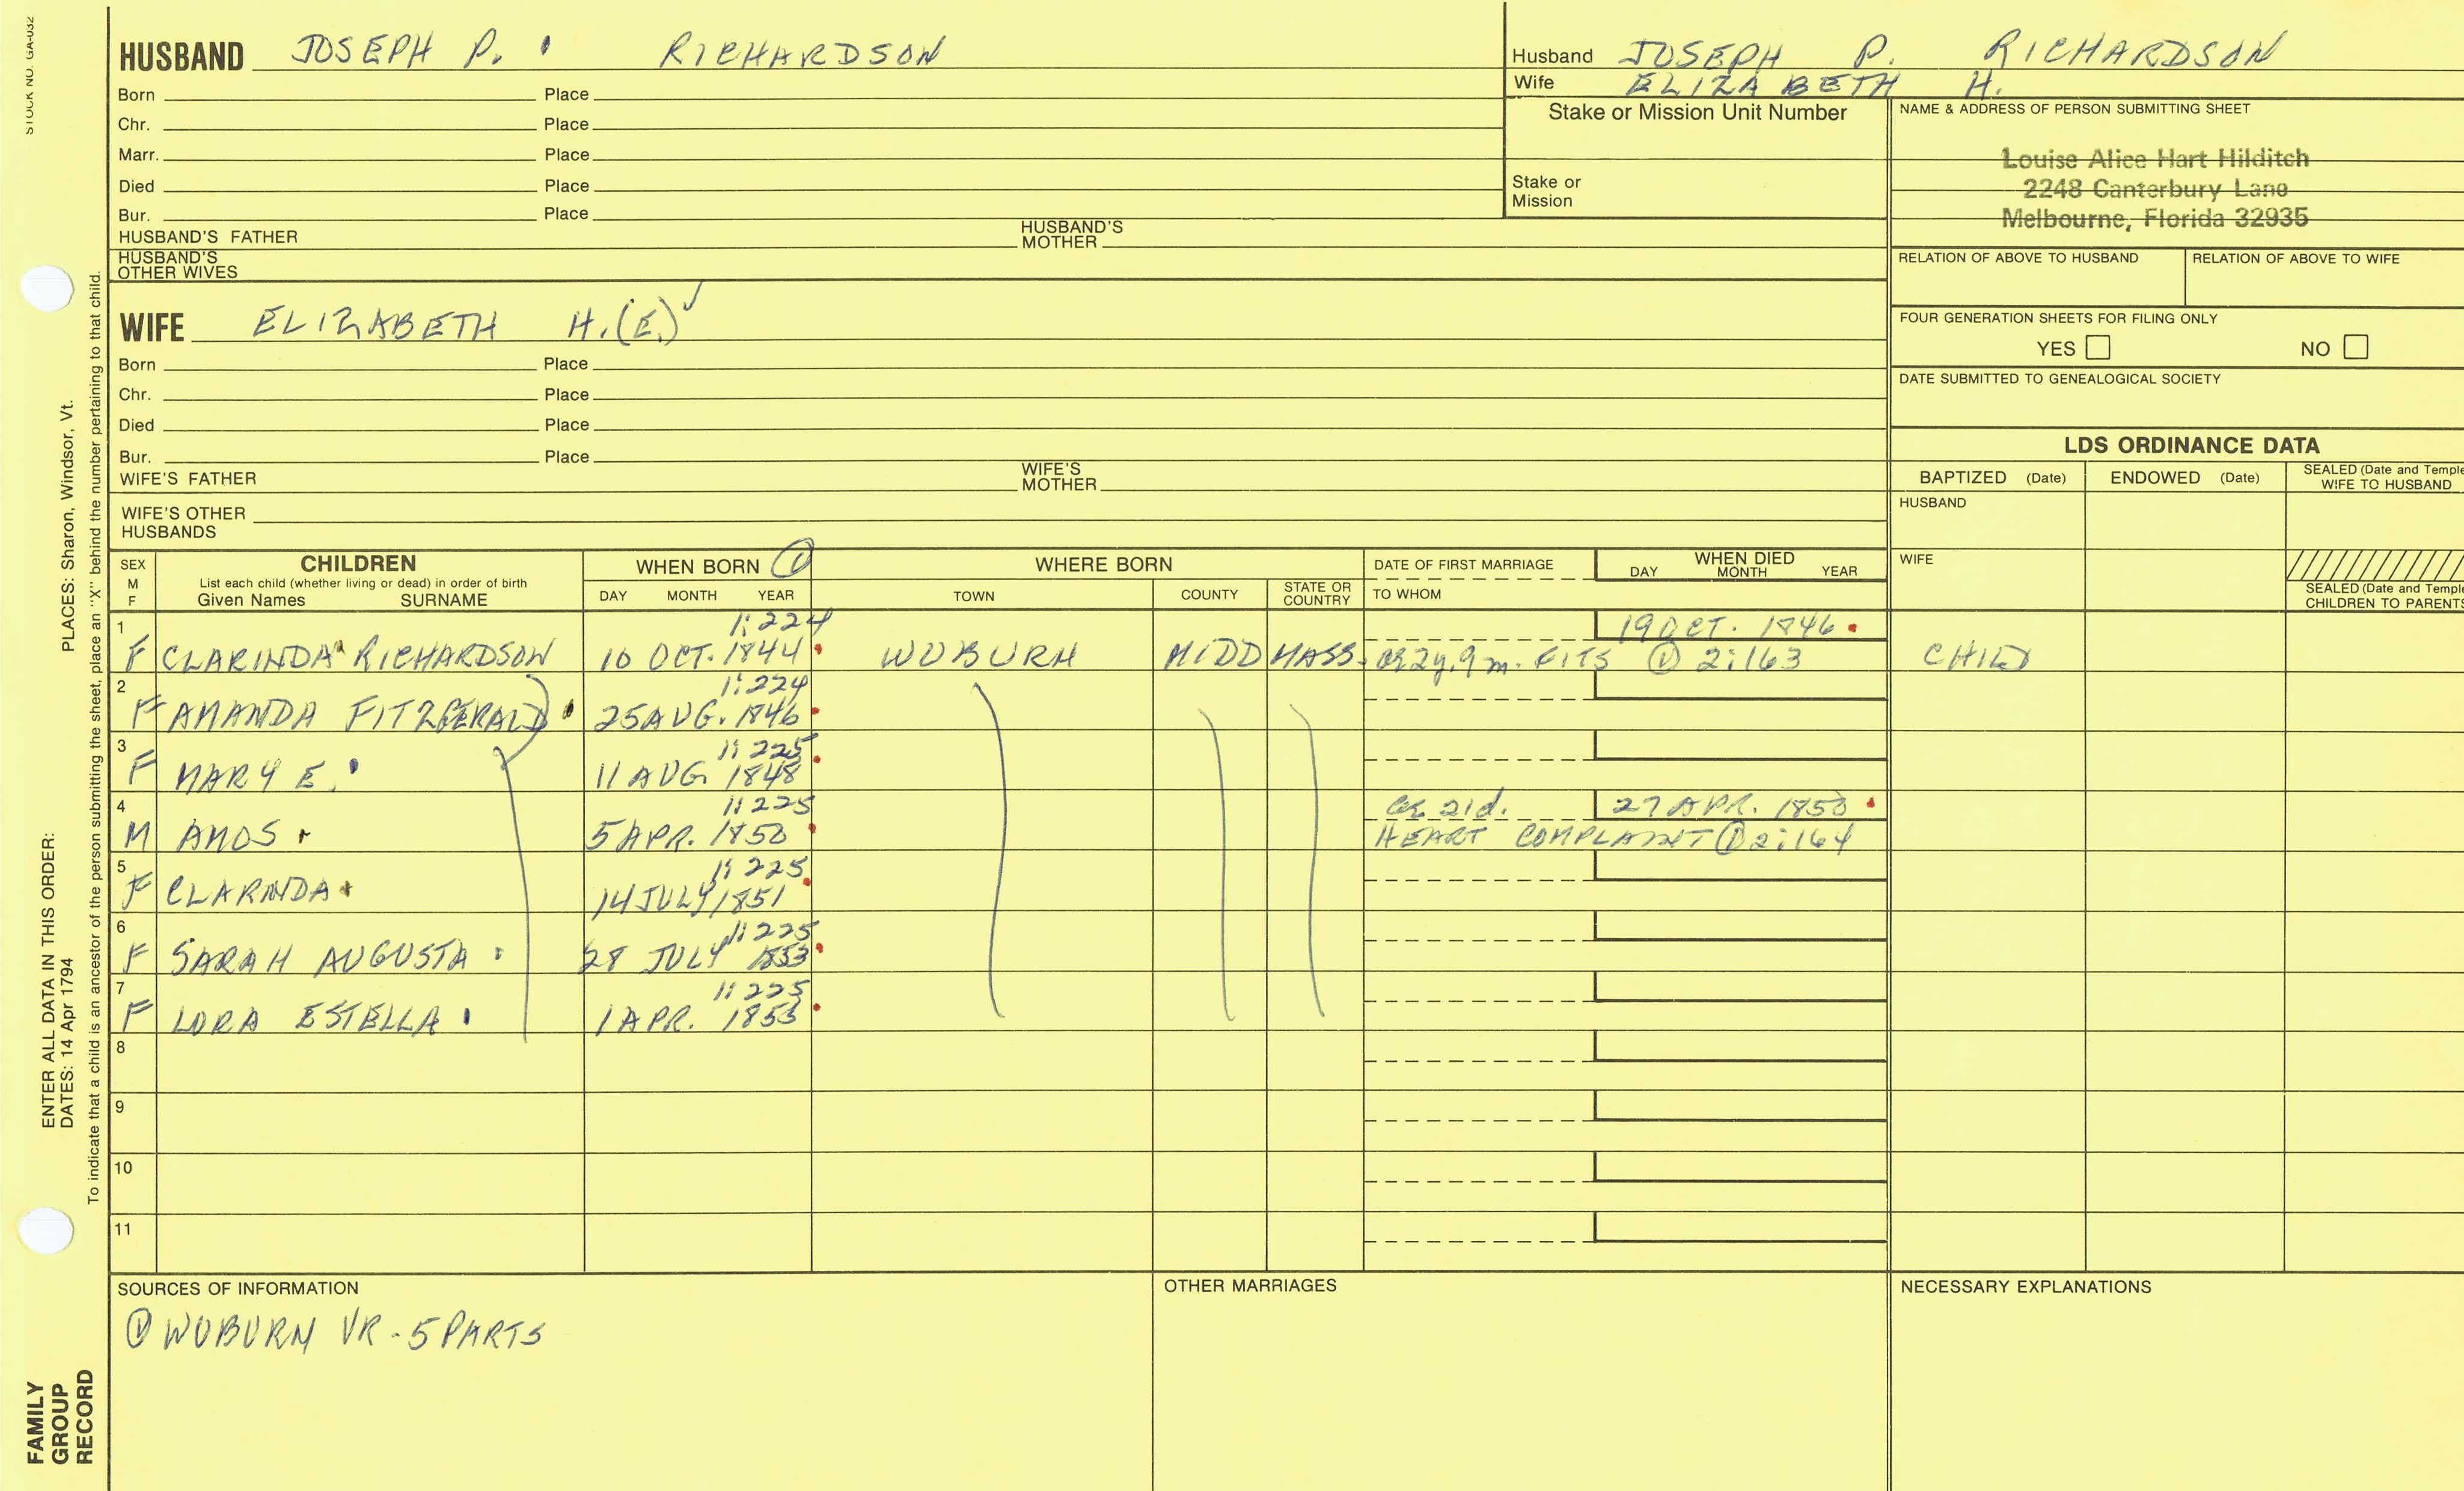 STOCK NO. GA-032
HUSBAND JOSEPH P. RICHARDSON
Born Place
Chr. Place
Marr. Place
Died Place
Bur. Place
HUSBAND'S FATHER HUSBAND'S MOTHER
HUSBAND'S OTHER WIVES
Husband JOSEPH P. RICHARDSON
Wife ELIZABETH H.
Stake or Mission Unit Number
Stake or Mission
NAME & ADDRESS OF PERSON SUBMITTING SHEET
Louise Alice Hart Hilditch
2248 Canterbury Lane
Melbourne, Florida 32935
RELATION OF ABOVE TO HUSBAND RELATION OF ABOVE TO WIFE
FOUR GENERATION SHEETS FOR FILING ONLY
YES NO
DATE SUBMITTED TO GENEALOGICAL SOCIETY
WIFE ELIZABETH H.(E.)
Born Place
Chr. Place
Died Place
Bur. Place
WIFE'S FATHER WIFE'S MOTHER
WIFE'S OTHER HUSBANDS
LDS ORDINANCE DATA
BAPTIZED (Date) ENDOWED (Date) SEALED (Date and Temple
WIFE TO HUSBAND
HUSBAND
WIFE
SEALED (Date and Temple
CHILDREN TO PARENTS
SEX M F
CHILDREN
List each child (whether living or dead) in order of birth
Given Names SURNAME
WHEN BORN ①
DAY MONTH YEAR
WHERE BORN
TOWN COUNTY STATE OR COUNTRY
DATE OF FIRST MARRIAGE
TO WHOM
WHEN DIED
DAY MONTH YEAR
1 1:224 19 OCT. 1846
F CLARINDA RICHARDSON 10 OCT. 1844 WOBURN MIDD MASS. 2y, 9 m. FITS ① 2:163 CHILD
2 1:224
F AMANDA FITZGERALD 25 AUG. 1846
3 1:225
F MARY E. 11 AUG 1848
4 1:225 21d. 27 APR. 1850
M AMOS 5 APR. 1850 HEART COMPLAINT ① 2:164
5 1:225
F CLARINDA 14 JULY 1851
6 1:225
F SARAH AUGUSTA 28 JULY 1853
7 1:225
F LORA ESTELLA 1 APR. 1855
8
9
10
11
SOURCES OF INFORMATION
① WOBURN VR - 5 PARTS
OTHER MARRIAGES
NECESSARY EXPLANATIONS
PLACES: Sharon, Windsor, Vt.
To indicate that a child is an ancestor of the person submitting the sheet, place an "X" behind the number pertaining to that child.
ENTER ALL DATA IN THIS ORDER:
DATES: 14 Apr 1794
FAMILY
GROUP
RECORD